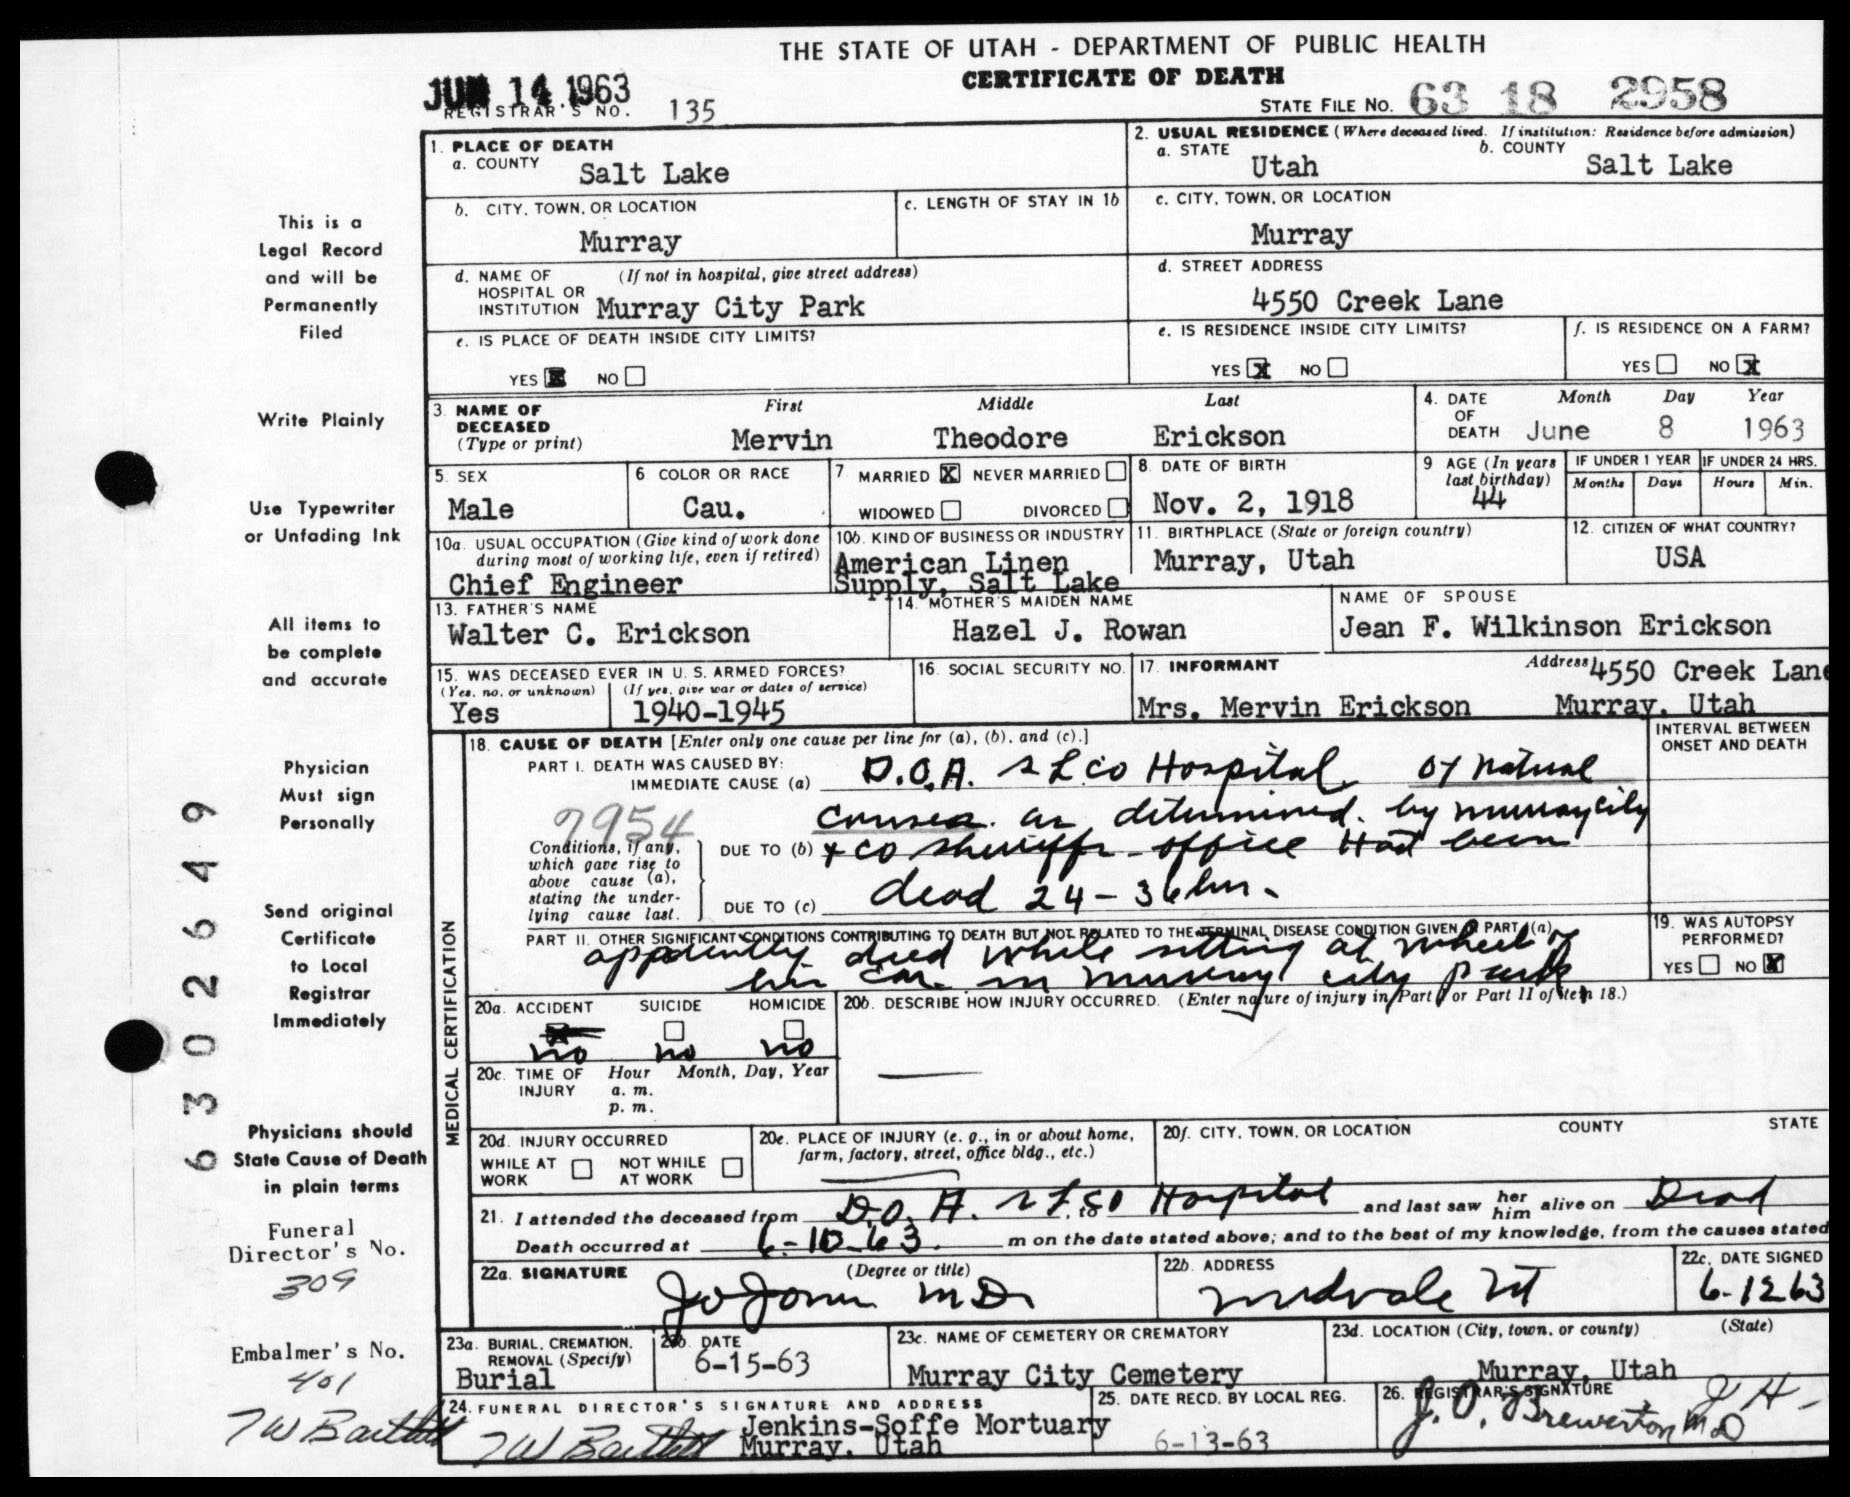 THE STATE OF UTAH - DEPARTMENT OF PUBLIC HEALTH
CERTIFICATE OF DEATH
JUN 14 1963
REGISTRAR'S NO. 135
STATE FILE NO. 63 18 2958
1. PLACE OF DEATH
a. COUNTY
Salt Lake
2. USUAL RESIDENCE (Where deceased lived. If institution: Residence before admission)
a. STATE b. COUNTY
Utah Salt Lake
b. CITY, TOWN, OR LOCATION
Murray
c. LENGTH OF STAY IN 1b
c. CITY, TOWN, OR LOCATION
Murray
d. NAME OF (If not in hospital, give street address)
HOSPITAL OR
INSTITUTION Murray City Park
d. STREET ADDRESS
4550 Creek Lane
e. IS PLACE OF DEATH INSIDE CITY LIMITS?
YES X NO
e. IS RESIDENCE INSIDE CITY LIMITS?
YES X NO
f. IS RESIDENCE ON A FARM?
YES NO X
3. NAME OF First Middle Last
DECEASED
(Type or print) Mervin Theodore Erickson
4. DATE Month Day Year
OF
DEATH June 8 1963
5. SEX
Male
6 COLOR OR RACE
Cau.
7 MARRIED X NEVER MARRIED
WIDOWED DIVORCED
8. DATE OF BIRTH
Nov. 2, 1918
9 AGE (In years
last birthday)
44
IF UNDER 1 YEAR IF UNDER 24 HRS.
Months Days Hours Min.
10a. USUAL OCCUPATION (Give kind of work done
during most of working life, even if retired)
Chief Engineer
10b. KIND OF BUSINESS OR INDUSTRY
American Linen
Supply, Salt Lake
11. BIRTHPLACE (State or foreign country)
Murray, Utah
12. CITIZEN OF WHAT COUNTRY?
USA
13. FATHER'S NAME
Walter C. Erickson
14. MOTHER'S MAIDEN NAME
Hazel J. Rowan
NAME OF SPOUSE
Jean F. Wilkinson Erickson
15. WAS DECEASED EVER IN U. S. ARMED FORCES?
(Yes, no, or unknown) (If yes, give war or dates of service)
Yes 1940-1945
16. SOCIAL SECURITY NO.
17. INFORMANT Address 4550 Creek Lane
Mrs. Mervin Erickson Murray, Utah
18. CAUSE OF DEATH [Enter only one cause per line for (a), (b), and (c).]
INTERVAL BETWEEN
ONSET AND DEATH
PART I. DEATH WAS CAUSED BY:
IMMEDIATE CAUSE (a) D.O.A. S L Co Hospital of natural
7954 causes as determined by murray city
Conditions, if any,
which gave rise to
above cause (a),
stating the under-
lying cause last.
DUE TO (b) + co sheriffs office Had been
DUE TO (c) dead 24-36 hrs.
PART II. OTHER SIGNIFICANT CONDITIONS CONTRIBUTING TO DEATH BUT NOT RELATED TO THE TERMINAL DISEASE CONDITION GIVEN IN PART I (a)
apparently died while sitting at wheel of
his car in murray city park
19. WAS AUTOPSY
PERFORMED?
YES NO X
20a. ACCIDENT SUICIDE HOMICIDE
no no no
20b. DESCRIBE HOW INJURY OCCURRED. (Enter nature of injury in Part I or Part II of item 18.)
20c. TIME OF Hour Month, Day, Year
INJURY a. m.
p. m.
20d. INJURY OCCURRED
WHILE AT NOT WHILE
WORK AT WORK
20e. PLACE OF INJURY (e. g., in or about home,
farm, factory, street, office bldg., etc.)
20f. CITY, TOWN, OR LOCATION COUNTY STATE
21. I attended the deceased from D.O.A. S L Co Hospital and last saw her him alive on Dead
Death occurred at 6-10-63 m on the date stated above; and to the best of my knowledge, from the causes stated
22a. SIGNATURE (Degree or title)
M.D.
22b. ADDRESS
Midvale Ut
22c. DATE SIGNED
6-12 63
23a. BURIAL, CREMATION,
REMOVAL (Specify)
Burial
23b. DATE
6-15-63
23c. NAME OF CEMETERY OR CREMATORY
Murray City Cemetery
23d. LOCATION (City, town, or county) (State)
Murray, Utah
24. FUNERAL DIRECTOR'S SIGNATURE AND ADDRESS
TW Bartlett Jenkins-Soffe Mortuary
Murray, Utah
25. DATE RECD. BY LOCAL REG.
6-13-63
26. REGISTRAR'S SIGNATURE
J. O. Brewerton M D
J H
MEDICAL CERTIFICATION
This is a
Legal Record
and will be
Permanently
Filed
Write Plainly
Use Typewriter
or Unfading Ink
All items to
be complete
and accurate
Physician
Must sign
Personally
Send original
Certificate
to Local
Registrar
Immediately
Physicians should
State Cause of Death
in plain terms
Funeral
Director's No.
309
Embalmer's No.
401
TW Bartlett
6302649